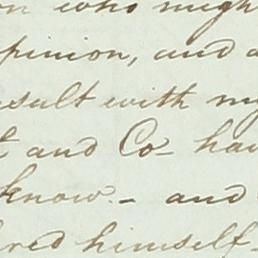 on who migh
pinion, and a
sult with my
t and Co- hav
know.- and
red himself-